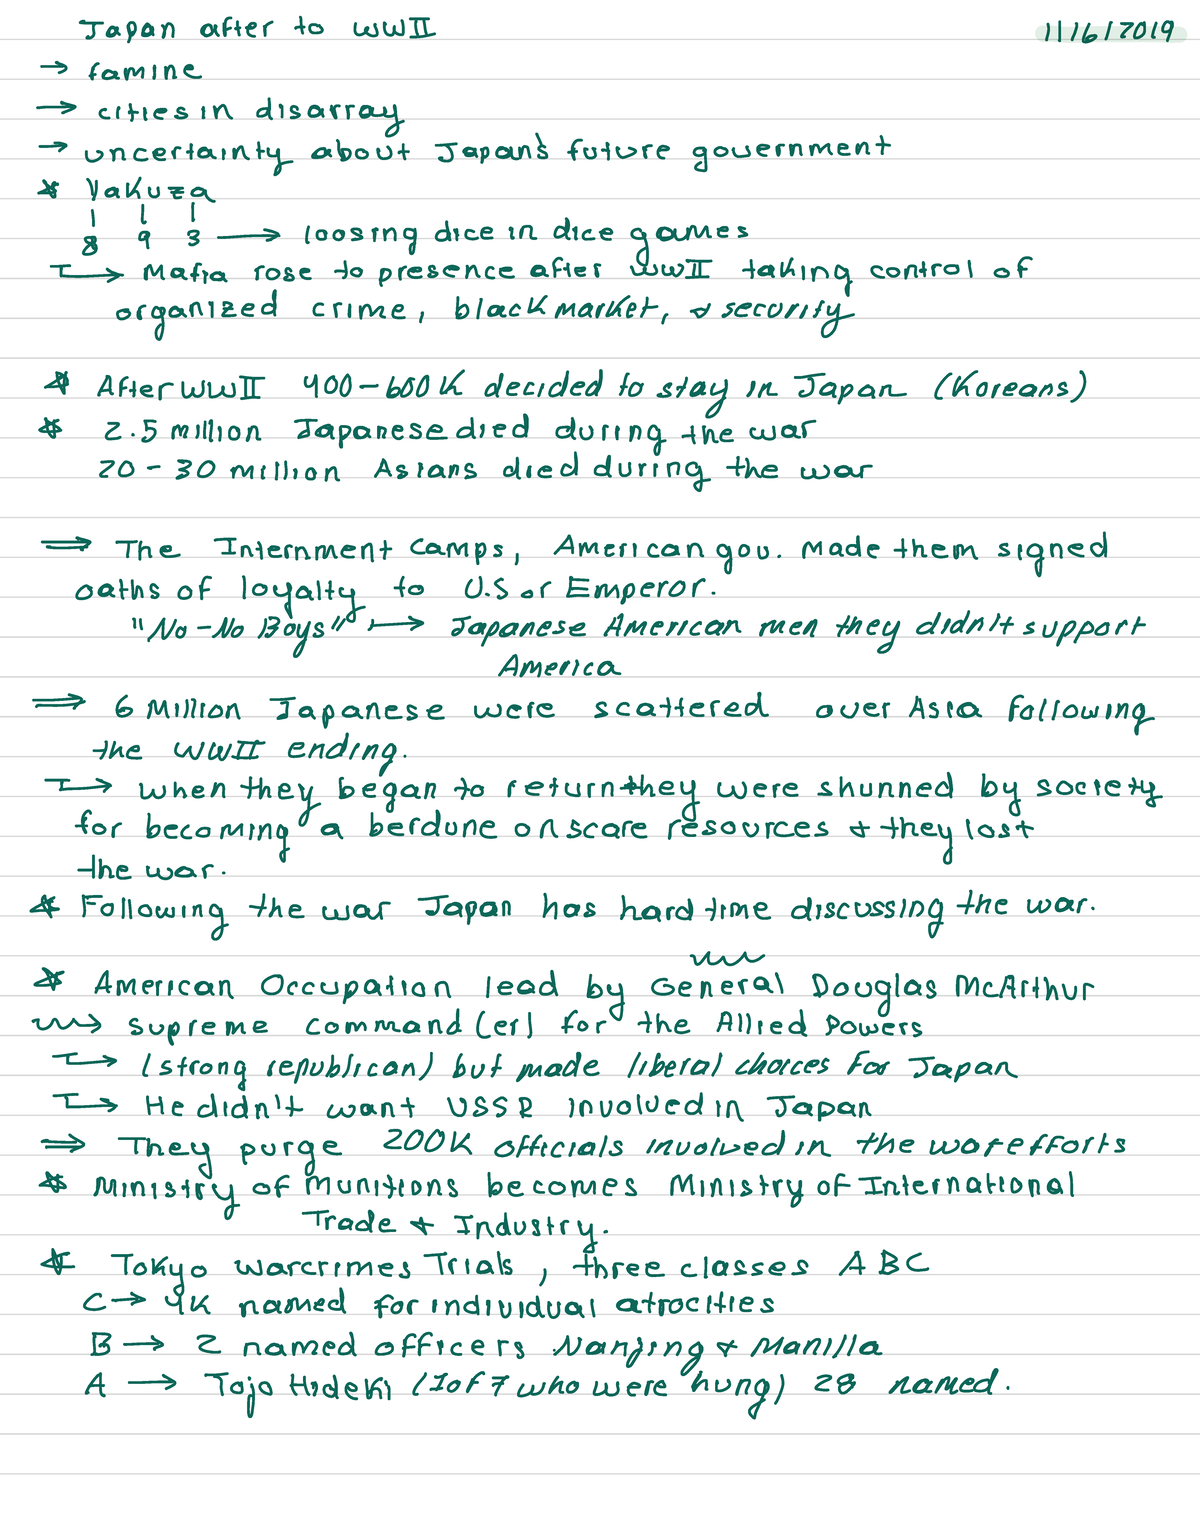 Japan after to WWII
11/16/2019
→ famine
→ cities in disarray
→ uncertainty about Japan's future government
* Yakuza
8 9 3 → loosing dice in dice games
↳ Mafia rose to presence after WWII taking control of
organized crime, black market, & security
* After WWII 400-600K decided to stay in Japan (Koreans)
* 2.5 million Japanese died during the war
20-30 million Asians died during the war
⇒ The Internment Camps, American gov. made them signed
oaths of loyalty to U.S or Emperor.
"No-No Boys" → Japanese American men they didn't support
America
⇒ 6 Million Japanese were scattered over Asia following
the WWII ending.
↳ when they began to return they were shunned by society
for becoming a berdune on scare resources & they lost
the war.
* Following the war Japan has hard time discussing the war.
* American Occupation lead by General Douglas McArthur
→ supreme command (er) for the Allied Powers
↳ (strong republican) but made liberal choices for Japan
↳ He didn't want USSR involved in Japan
⇒ They purge 200K officials involved in the war efforts
* Ministry of Munitions becomes Ministry of International
Trade & Industry.
* Tokyo warcrimes Trials, three classes A B C
C → 4K named for individual atrocities
B → 2 named officers Nanjing & Manilla
A → Tojo Hideki (1 of 7 who were hung) 28 named.